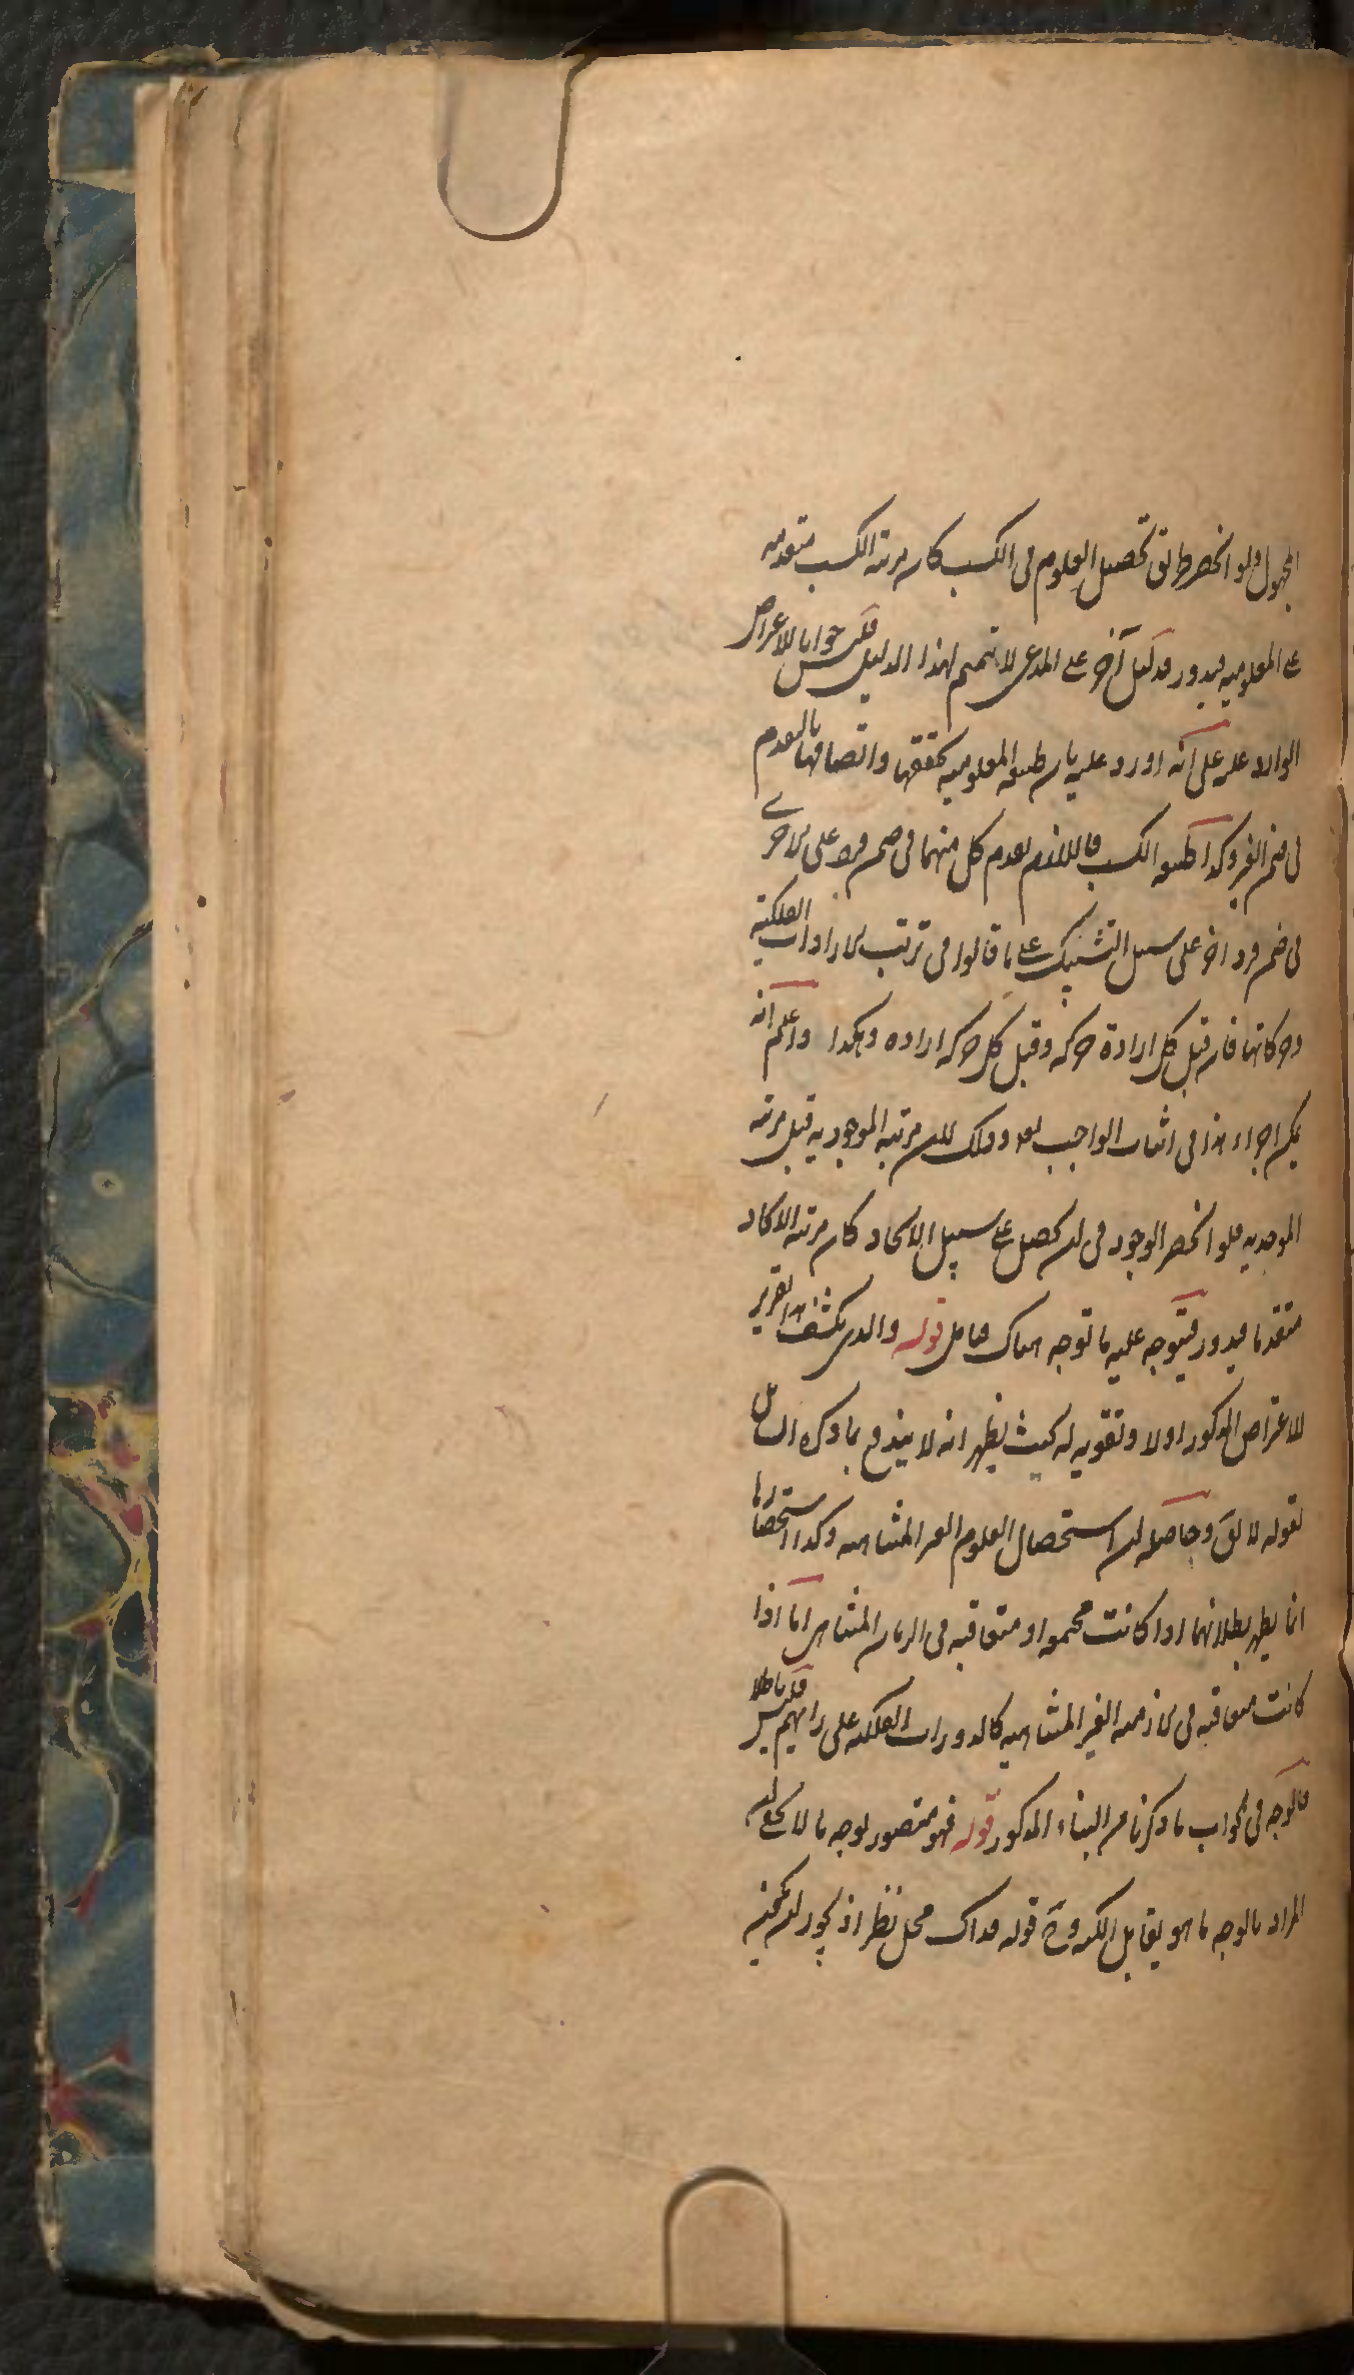 المجهول ولو انحصر طريق تحصيل العلوم في الكسب كان مرتبة الكسب متقدمة
على المعلومية فيدور فدليل آخر على المدعى لا تتميم لهذا الدليل فليس جوابا للاعتراض
الوارد عليه على انه اورد عليه بان طبيعة المعلومية تحققها واتصافها بالعدم
في ضمن الفرد وكذا طبيعة الكسب فاللازم تقدم كل منهما في ضمن فرد على الاخرى
في ضمن فرد اخر على سبيل التشبيك على ما قالوا في ترتب الارادات الفلكية
وحركاتها فان قبل كل ارادة حركة وقبل كل حركة ارادة وهكذا واعلم انه
يمكن اجراء هذا في اثبات الواجب بعد وذلك لان مرتبة الموجودية قبل مرتبة
الموجدية فلو انحصر الوجود في ان يحصل على سبيل الايجاد كان مرتبة الايجاد
متقدما فيدور فيتوجه عليه ما توجه هناك فتامل قوله والذي يكشف هذا تقرير
للاعتراض المذكور اولا وتقوية له بحيث يظهر انه لا يندفع بما ذكره السائل
بقوله لا يقال وحاصله ان استحصال العلوم الغير المتناهية وكذا استحضارها
انما يظهر بطلانهما اذا كانت مجتمعة او متعاقبة في الزمان المتناهي اما اذا
كانت متعاقبة في الازمنة الغير المتناهية كالدورات الفلكية على رايهم فليس باطلا
فالوجه في الجواب ما ذكرنا من البناء المذكور قوله فهو متصور بوجه ما لا يخفى ان
المراد بالوجه ما هو يقابل الكنه وح قوله فذاك محل نظر اذ يجوز ان يكون